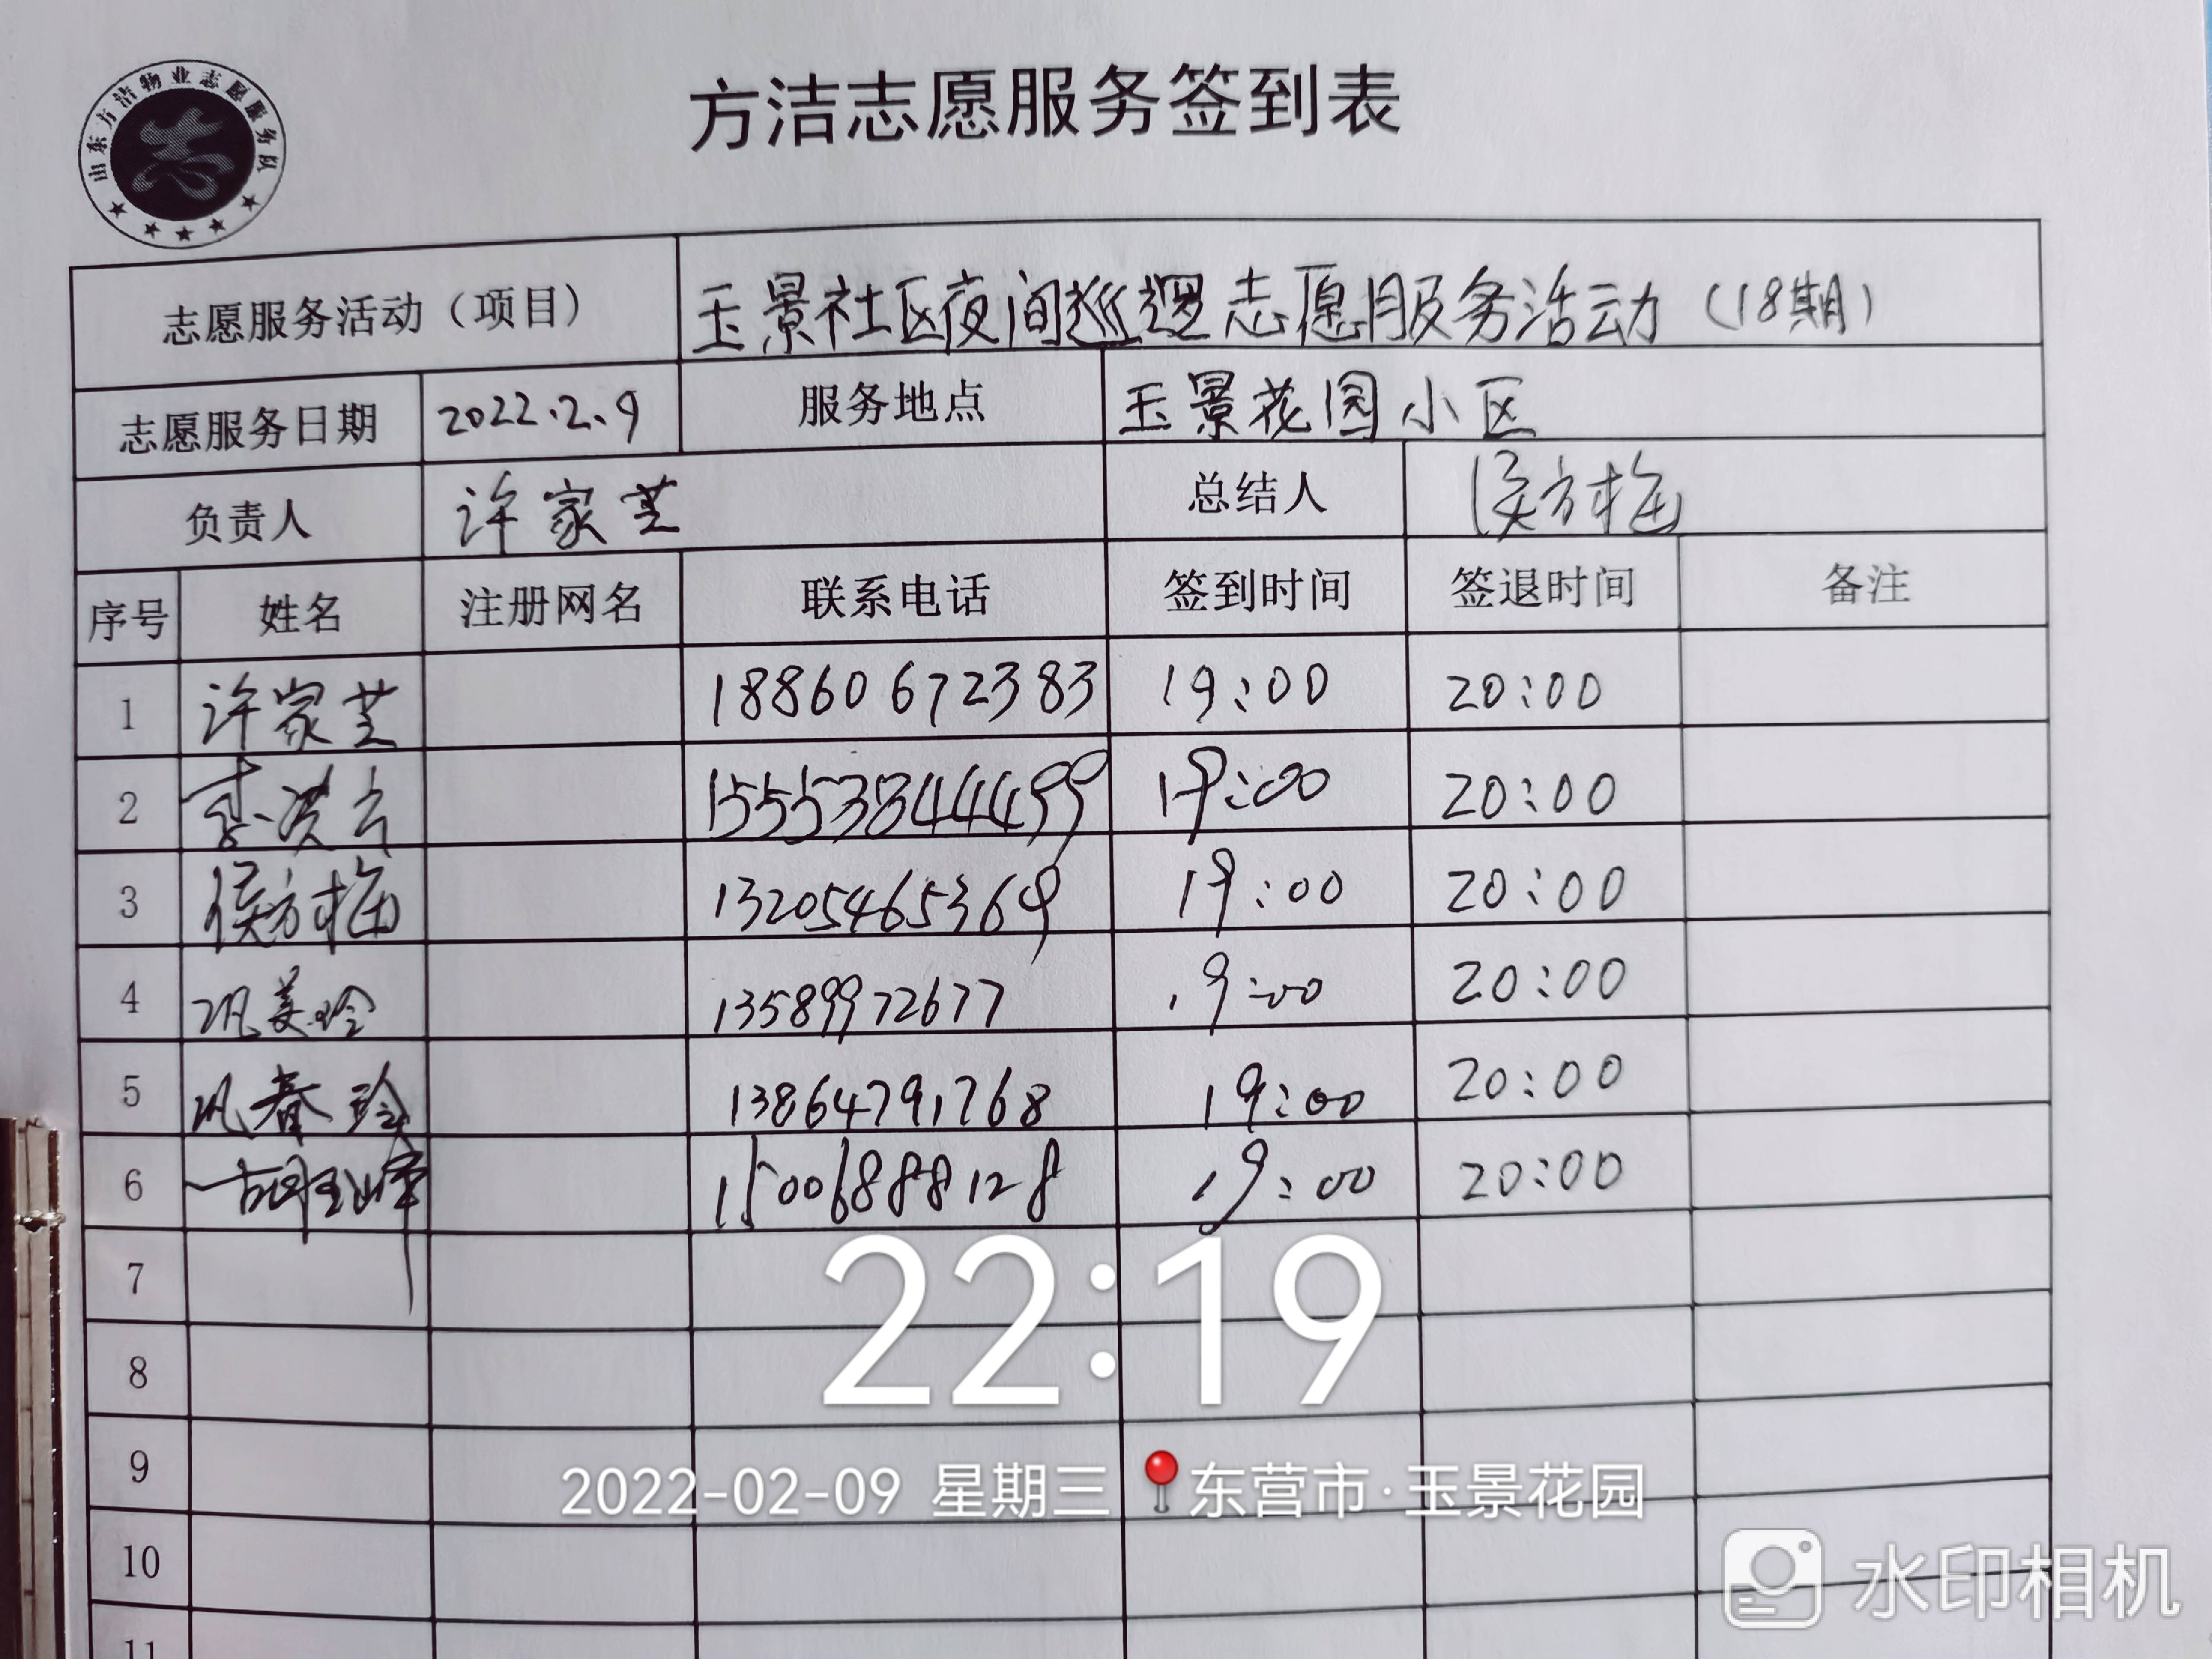 山东方洁物业志愿服务队
方洁志愿服务签到表
志愿服务活动（项目） 玉景社区夜间巡逻志愿服务活动（18期）
志愿服务日期 2022.2.9 服务地点 玉景花园小区
负责人 许家芝 总结人 侯方梅
序号 姓名 注册网名 联系电话 签到时间 签退时间 备注
1 许家芝 18860672383 19:00 20:00
2 15553844499 19:00 20:00
3 侯方梅 13205465369 19:00 20:00
4 巩美玲 13589972677 19:00 20:00
5 巩春玲 13864791768 19:00 20:00
6 15006888128 19:00 20:00
7
22:19
8
9
2022-02-09 星期三 东营市·玉景花园
10
水印相机
11